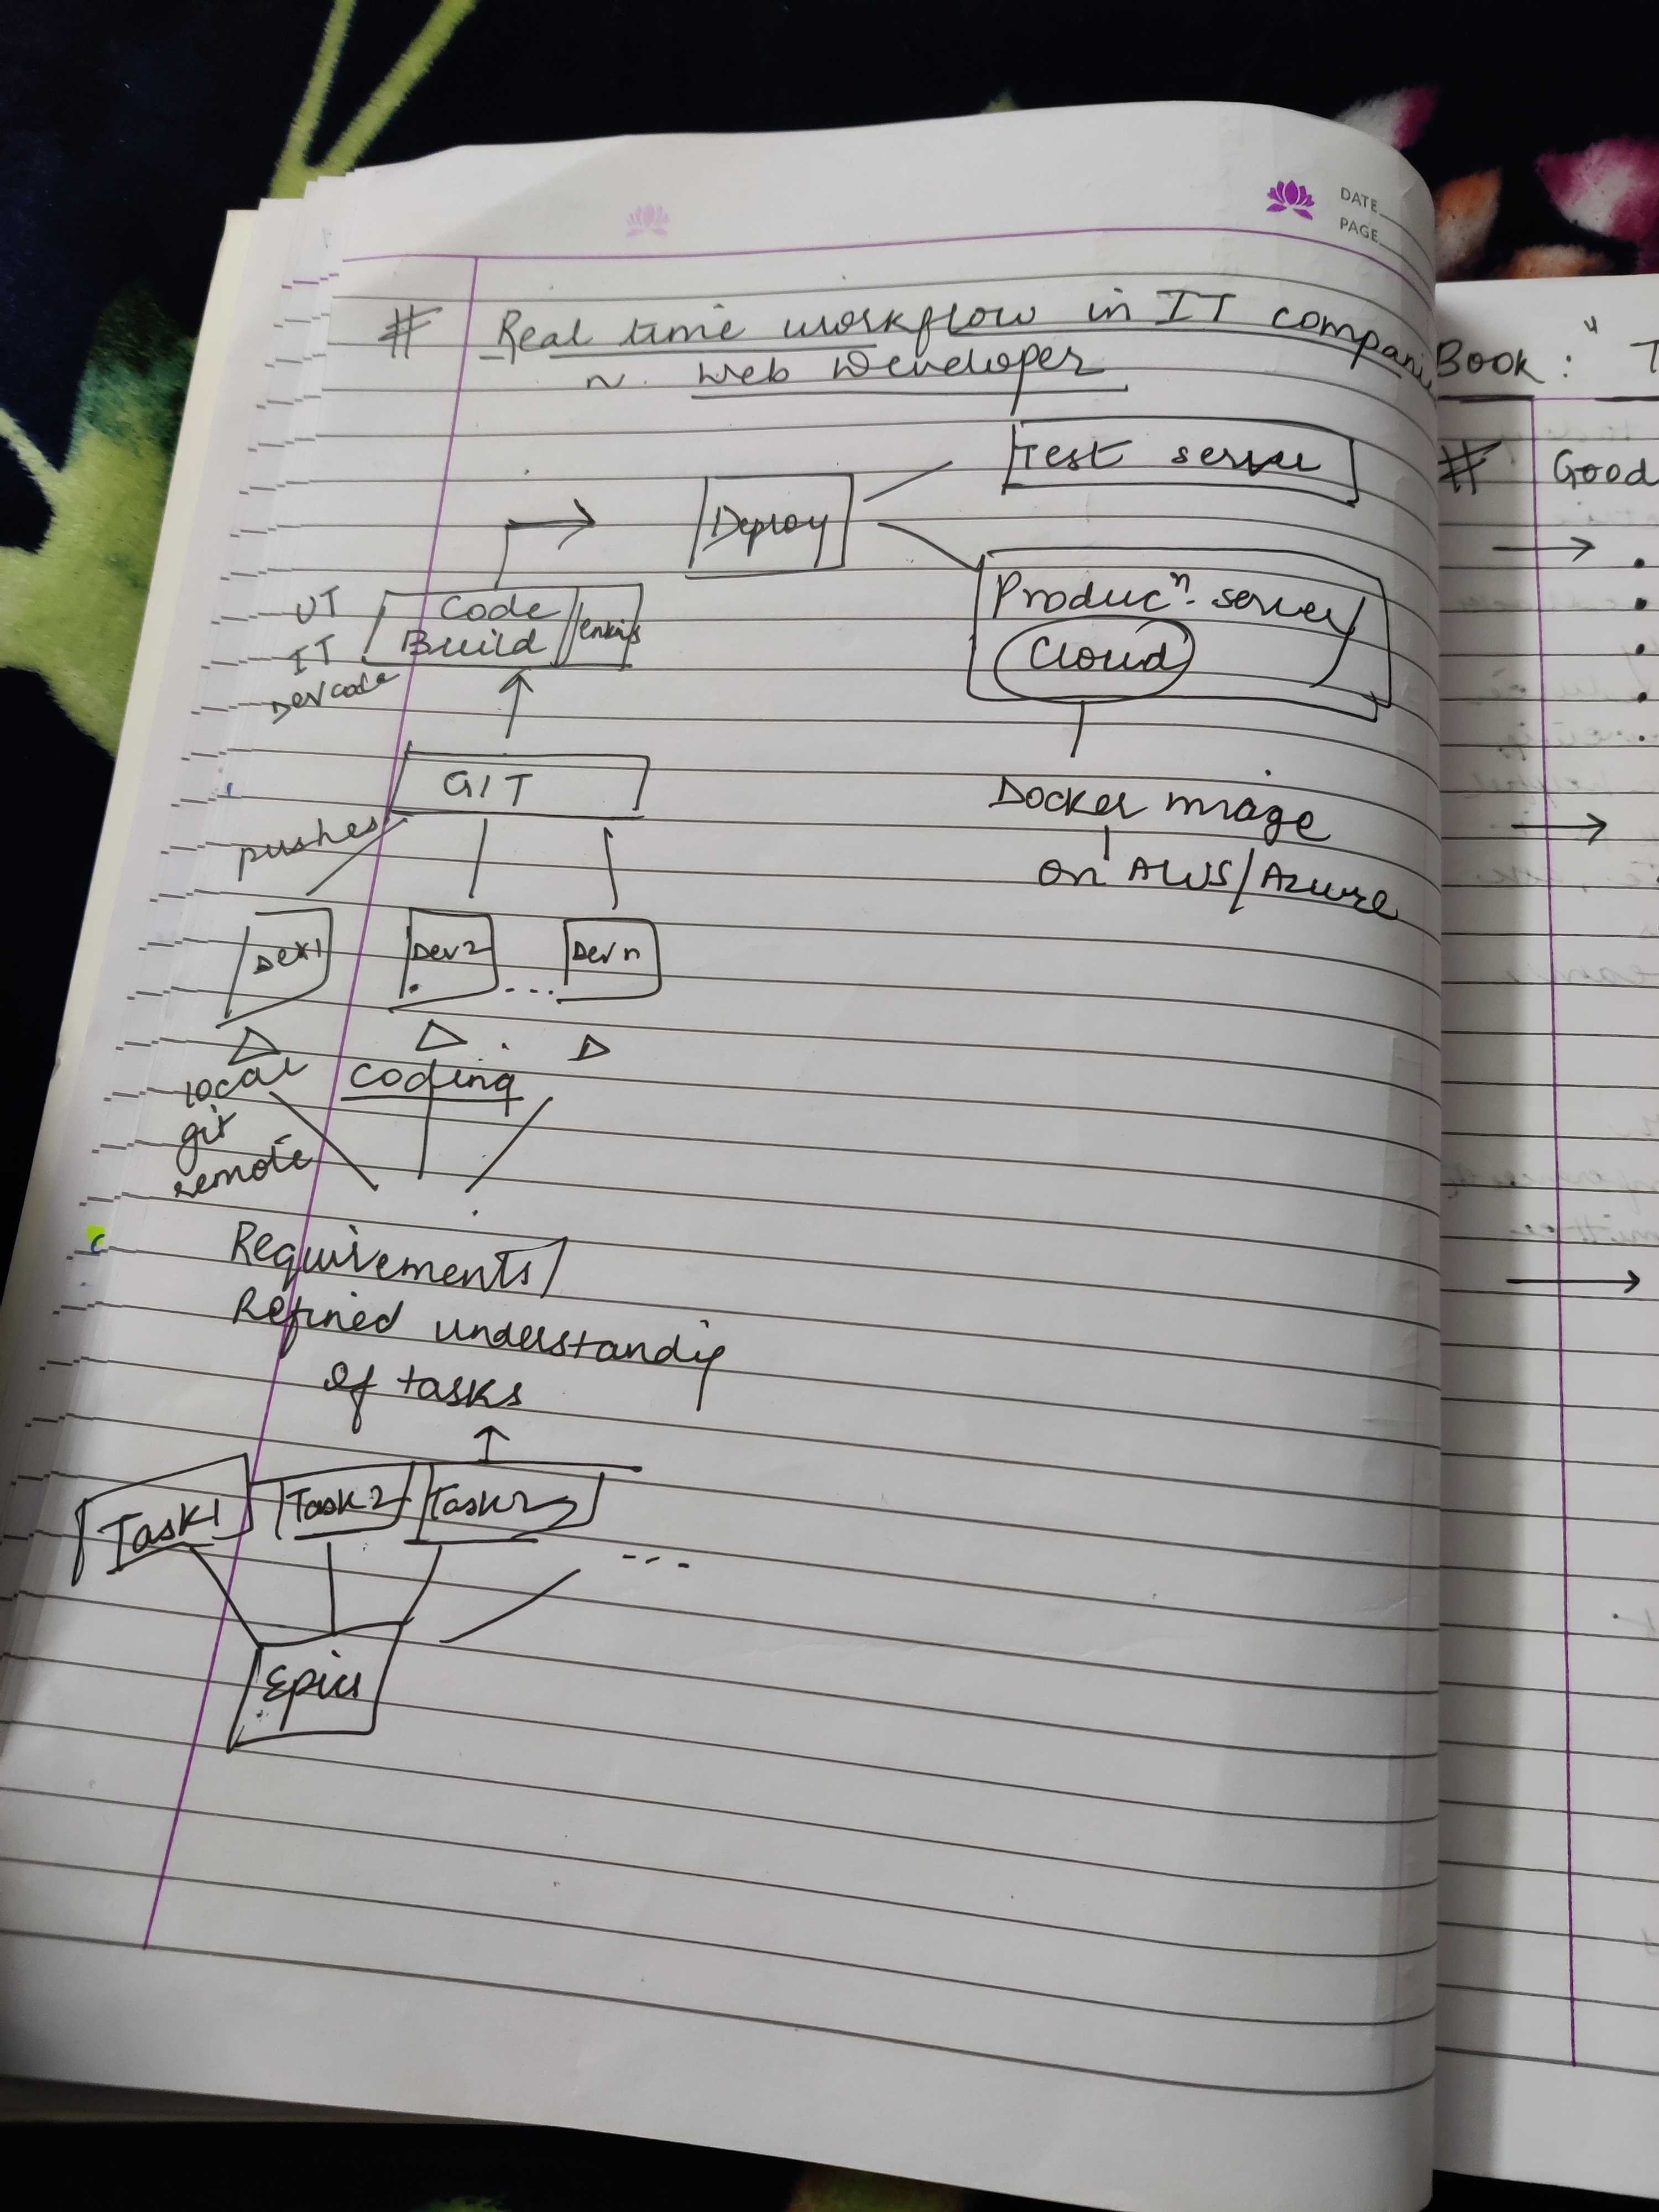 DATE
PAGE
# Real time workflow in IT compani
~ Web Developer
Test server
Deploy
Producⁿ. server
Cloud
Docker image
on AWS/Azure
UT
IT
Dev code
Code
Build
Jenkins
GIT
pushes
Dev1
Dev2
...
Dev n
local
git
remote
coding
Requirements/
Refined understandig
of tasks
Task1
Task2
...
Epics
Book : " T
# Good